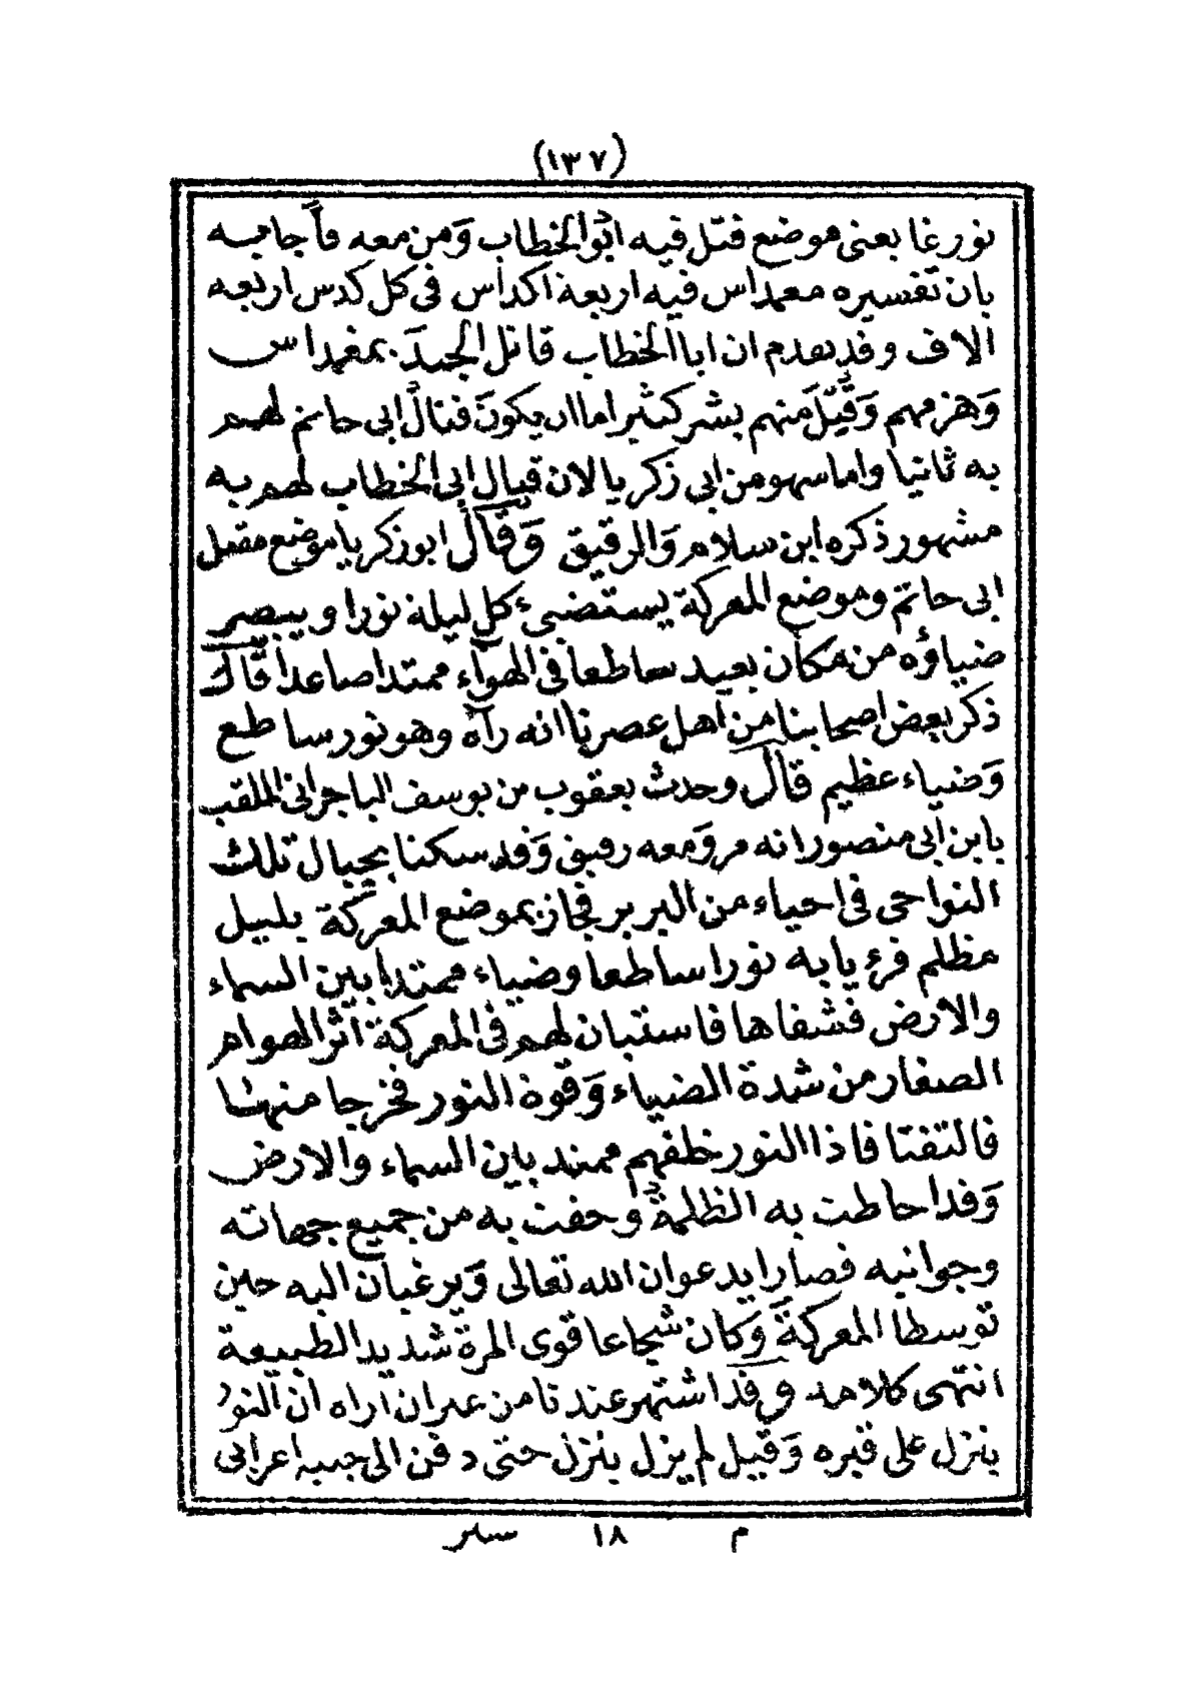 (١٣٧)
نورغا يعنى موضع قتل فيه ابو الخطاب وَمن معه فأجابه
بان تفسيره معمداس فيه اربعة اكداس فى كل كدس اربعه
الاف وقد تقدم ان ابا الخطاب قاتل الجيد بمغمداس
وَهزمهم وَقتل منهم بشر كثير اما ان يكون قتال ابى حاتم لهم
به ثانيا واما سهو من ابى زكريا لان قتال ابى الخطاب لهم به
مشهور ذكره ابن سلام وَالرقيق وَقال ابو زكريا موضع مقتل
ابى حاتم وموضع المعركة يستضىء كل ليلة نورا ويبصر
ضياؤه من مكان بعيد ساطعا فى الهوآء ممتدا صاعدا قال
ذكر بعض اصحابنا من اهل عصرنا انه رآه وهو نور ساطع
وَضياء عظيم قال وحدث يعقوب من يوسف الباجرانى الملقب
بابن ابى منصور انه مر وَمعه رفيق وَقد سكنا بجبال تلك
النواحى فى احياء من البربر فجاز بموضع المعركة بليل
مظلم فرءيا به نورا ساطعا وضياء ممتدا بين السماء
والارض فشفاها فاستبان لهم فى المعركة اثر الهوام
الصغار من شدة الضياء وَقوة النور فخرجا منها
فالتفتا فاذا النور خلفهم ممتد بين السماء والارض
وَقد احاطت به الظلمة وحفت به من جميع جهاته
وجوانبه فصارا يدعوان الله تعالى وَيرغبان اليه حين
توسطا المعركة وَكان شجاعا قوى المرة شديد الطبيعة
انتهى كلامه وقد اشتهر عندنا من عمران اراه ان النور
ينزل على قبره وَقيل لم يزل ينزل حتى دفن الى جنبه اعرابى
م ١٨ سير